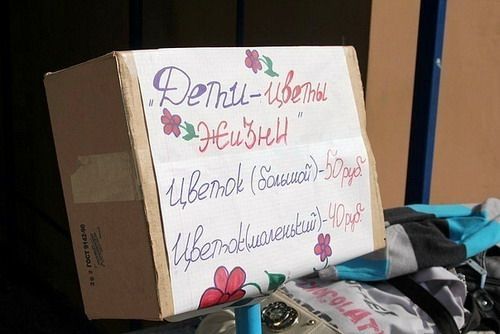 "Дети - цветы
жизни"
Цветок (большой) - 50 руб.
Цветок (маленький) - 40 руб.
ГОСТ 9142-90